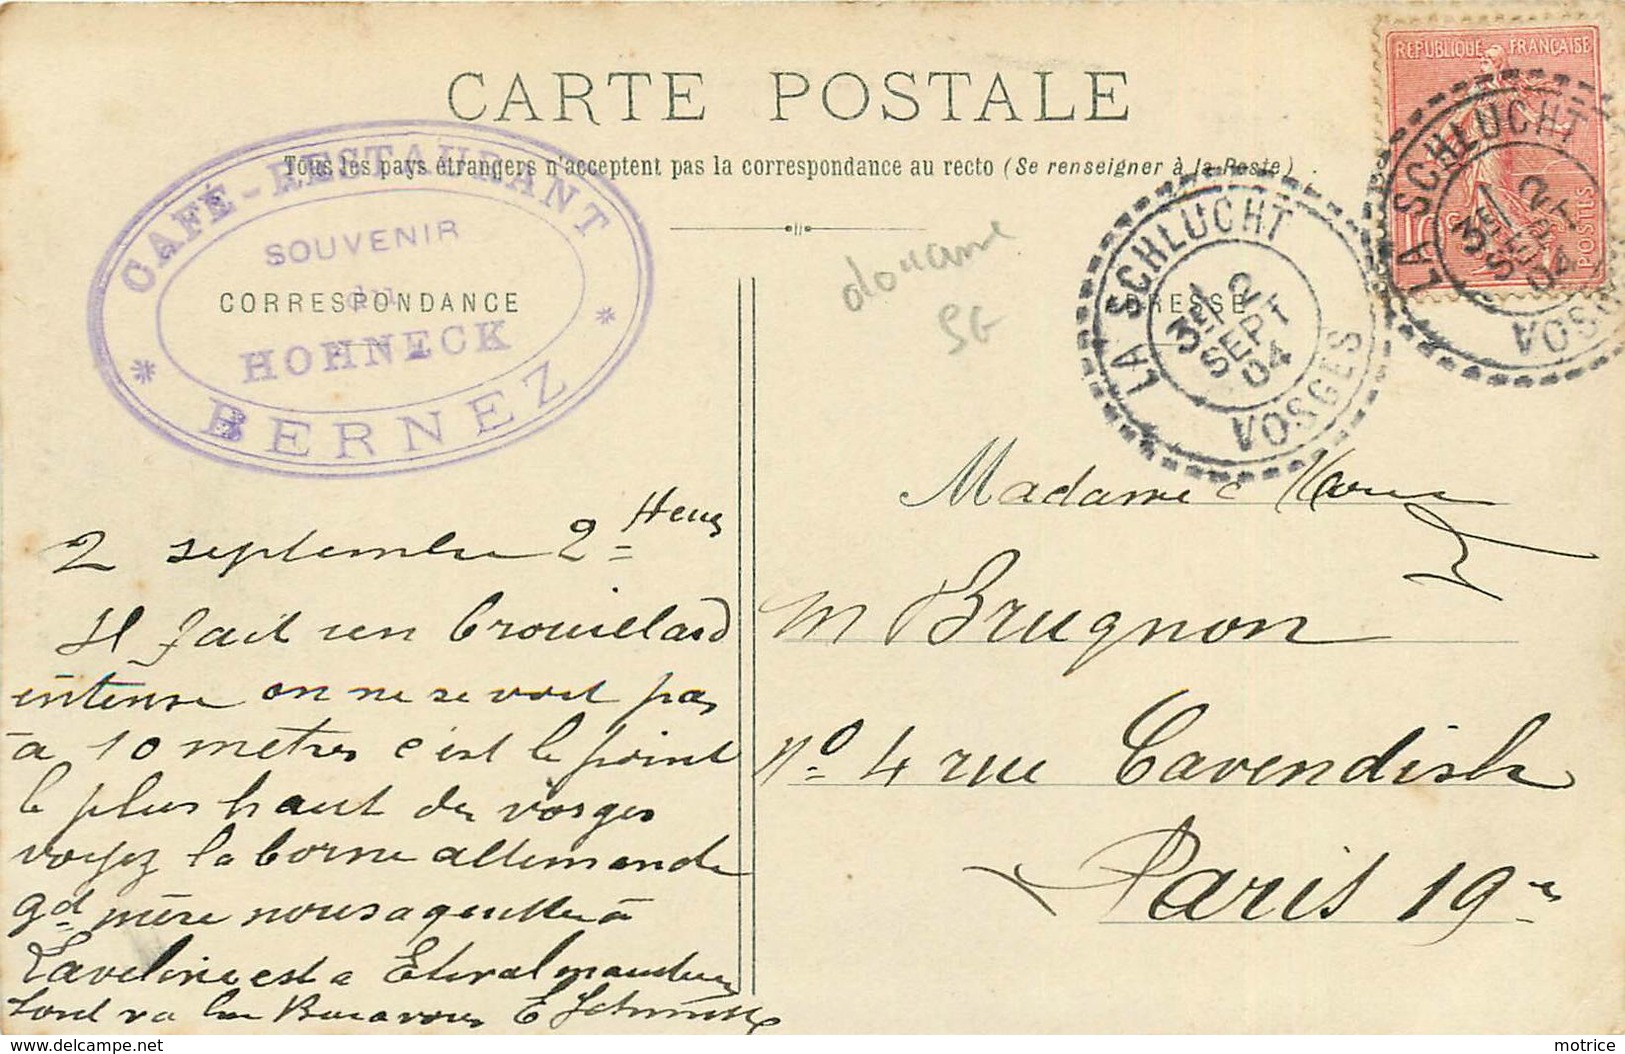 CARTE POSTALE
Tous les pays étrangers n'acceptent pas la correspondance au recto (Se renseigner à la Poste)
REPUBLIQUE FRANÇAISE
POSTES
LA SCHLUCHT
3E/ 2
SEPT
04
VOSGES
LA SCHLUCHT
3E/ 2
SEPT
04
VOSGES
CAFÉ-RESTAURANT
SOUVENIR
du
HOHNECK
* BERNEZ *
CORRESPONDANCE
ADRESSE
douane
SG
2 septembre 2 Heures
Il fait un brouillard
intense on ne se voit pas
à 10 metres c'est le point
le plus haut des vosges
voyez la borne allemande
gd mère nous a quitté à
Laveline est a Etival
tout va bien E Schmitt
Madame
M Brugnon
No 4 rue Cavendish
Paris 19e
delcampe.net
motrice